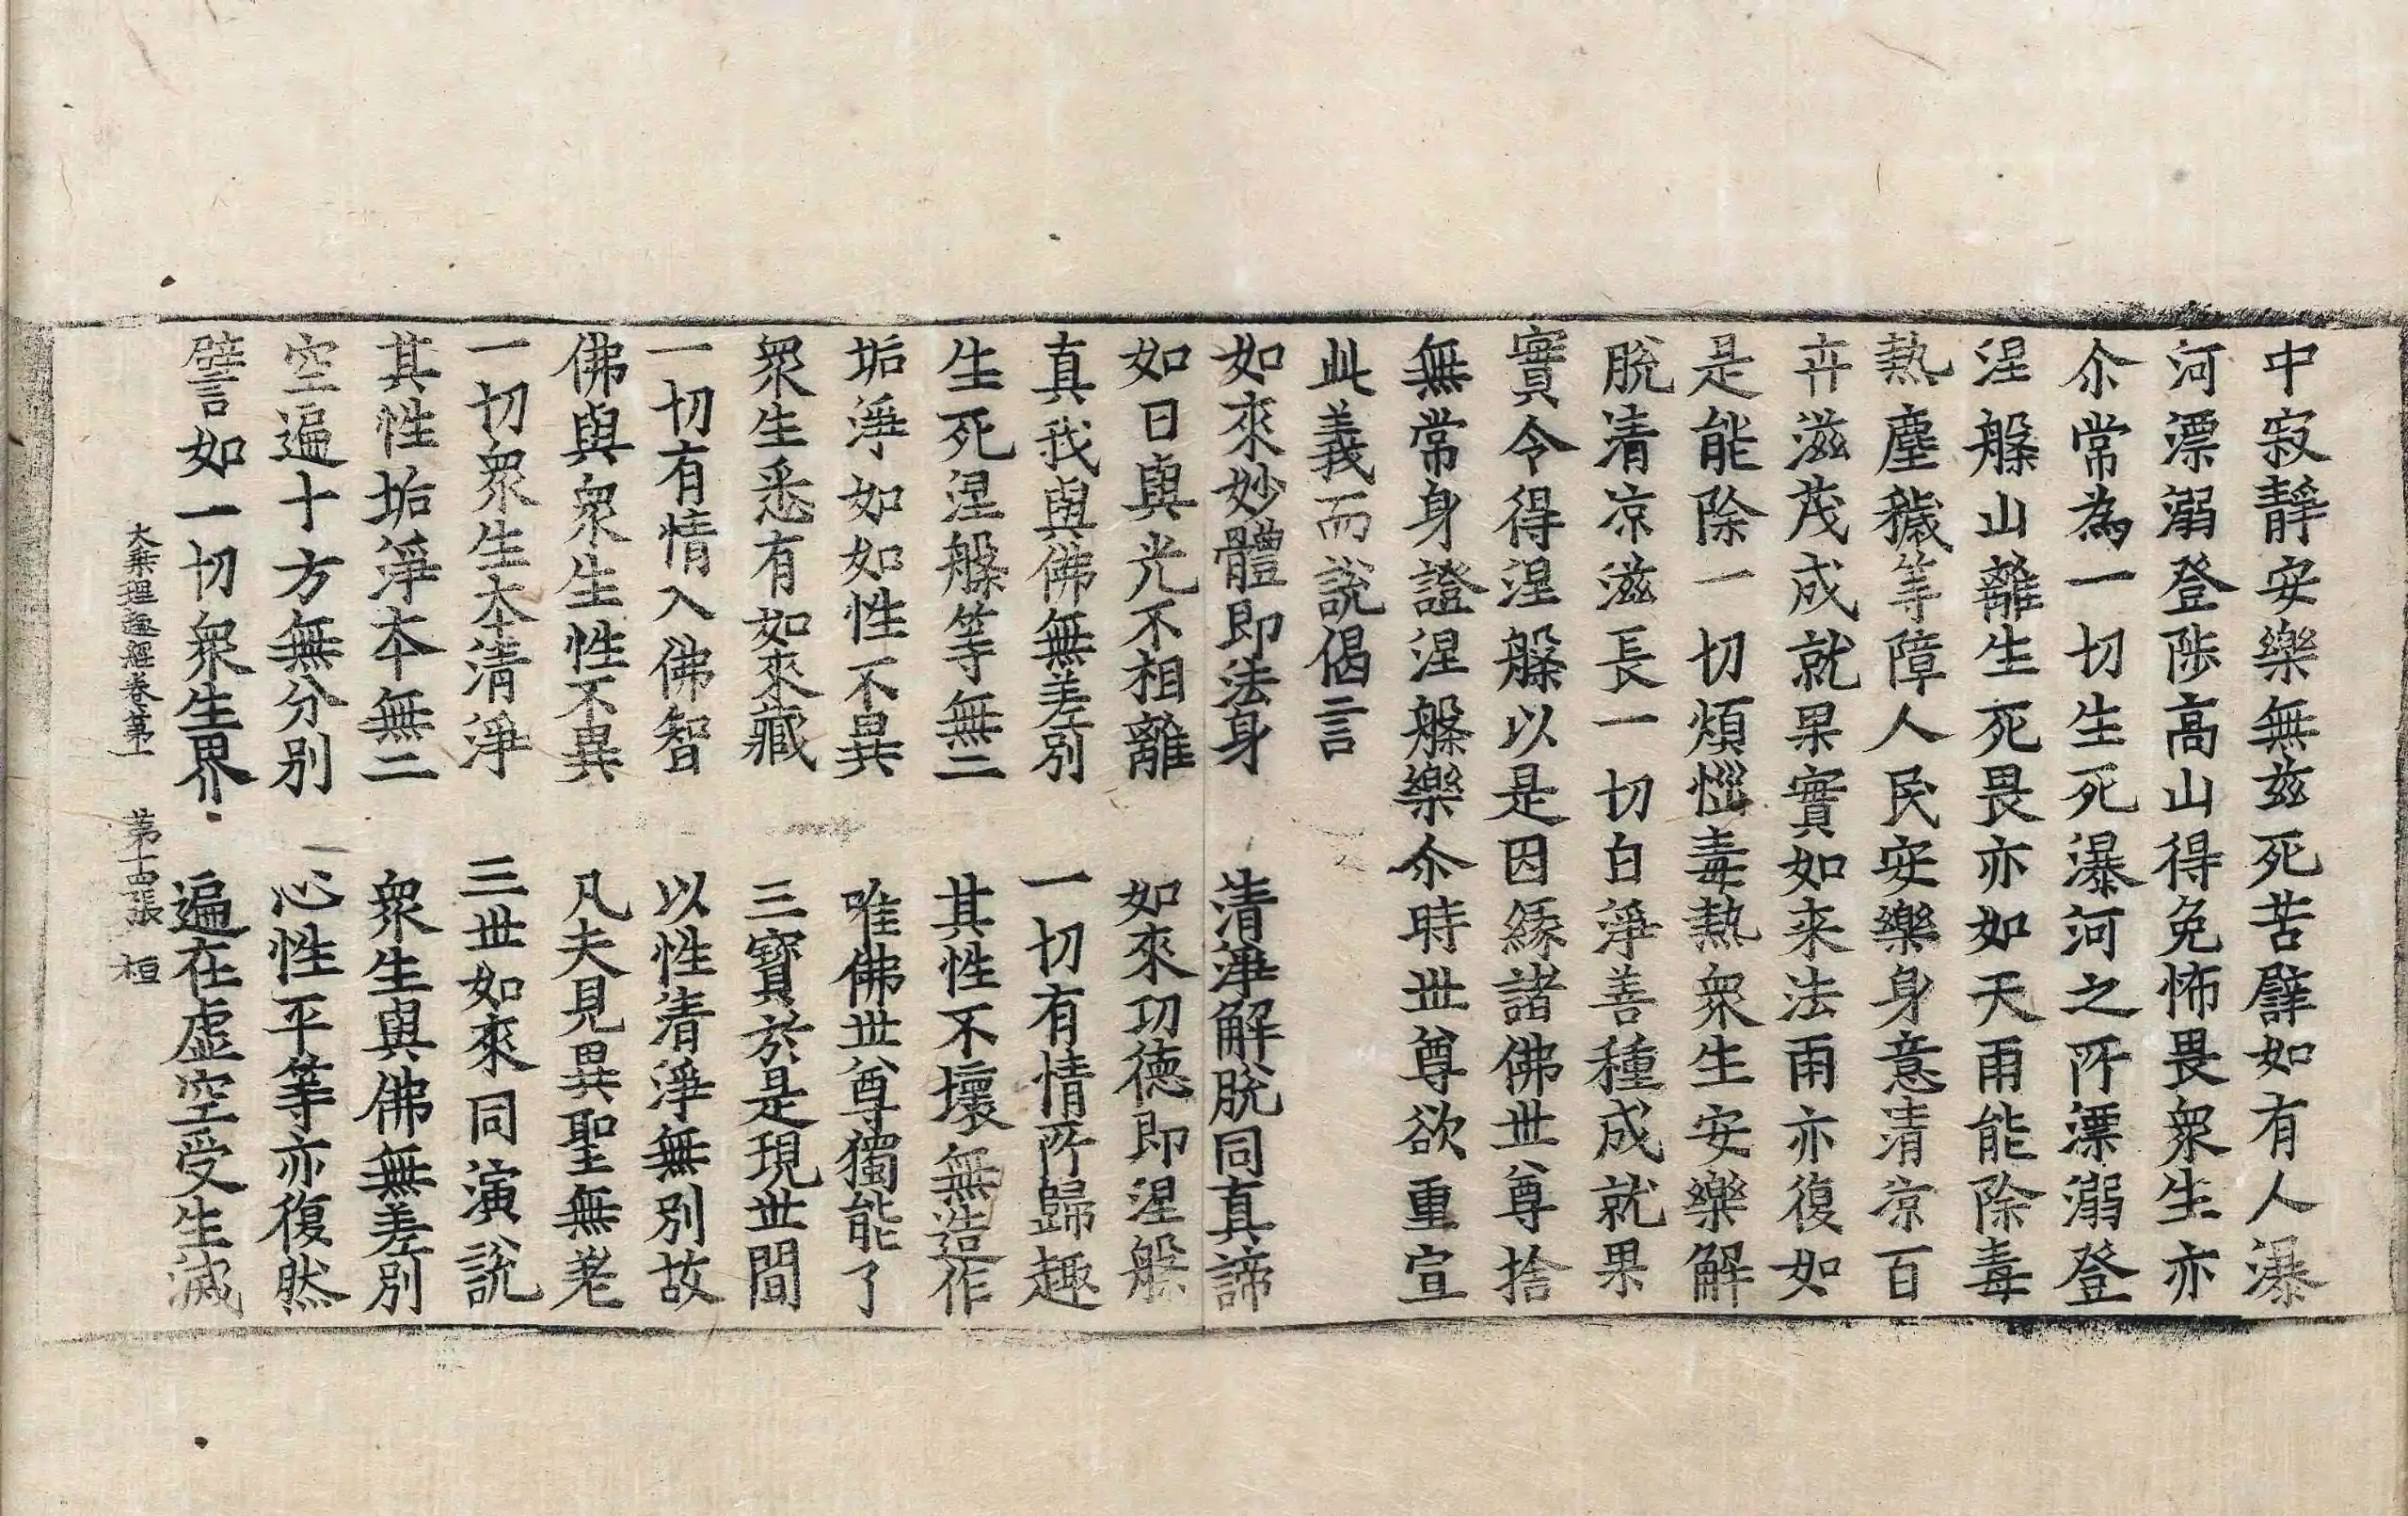 中寂靜安樂無兹死苦譬如有人瀑
河漂溺登陟高山得免怖畏衆生亦
尒常為一切生死瀑河之所漂溺登
涅槃山離生死畏亦如天雨能除毒
熱塵穢等障人民安樂身意清凉百
卉滋茂成就果實如来法雨亦復如
是能除一切煩惱毒熱衆生安樂解
脫清凉滋長一切白淨善種成就果
實令得涅槃以是因緣諸佛世尊捨
無常身證涅槃樂尒時世尊欲重宣
此義而說偈言
如來妙體即法身　清淨解脫同真諦
如日與光不相離　如來功德即涅槃
真我與佛無差別　一切有情所歸趣
生死涅槃等無二　其性不壞無造作
垢淨如如性不異　唯佛世尊獨能了
衆生悉有如來藏　三寶於是現世間
一切有情入佛智　以性清淨無別故
佛與衆生性不異　凡夫見異聖無差
一切衆生本清淨　三世如來同演說
其性垢淨本無二　衆生與佛無差別
空遍十方無分別　心性平等亦復然
譬如一切衆生界　遍在虛空受生滅
大乘理趣經卷第一　第十四張　桓